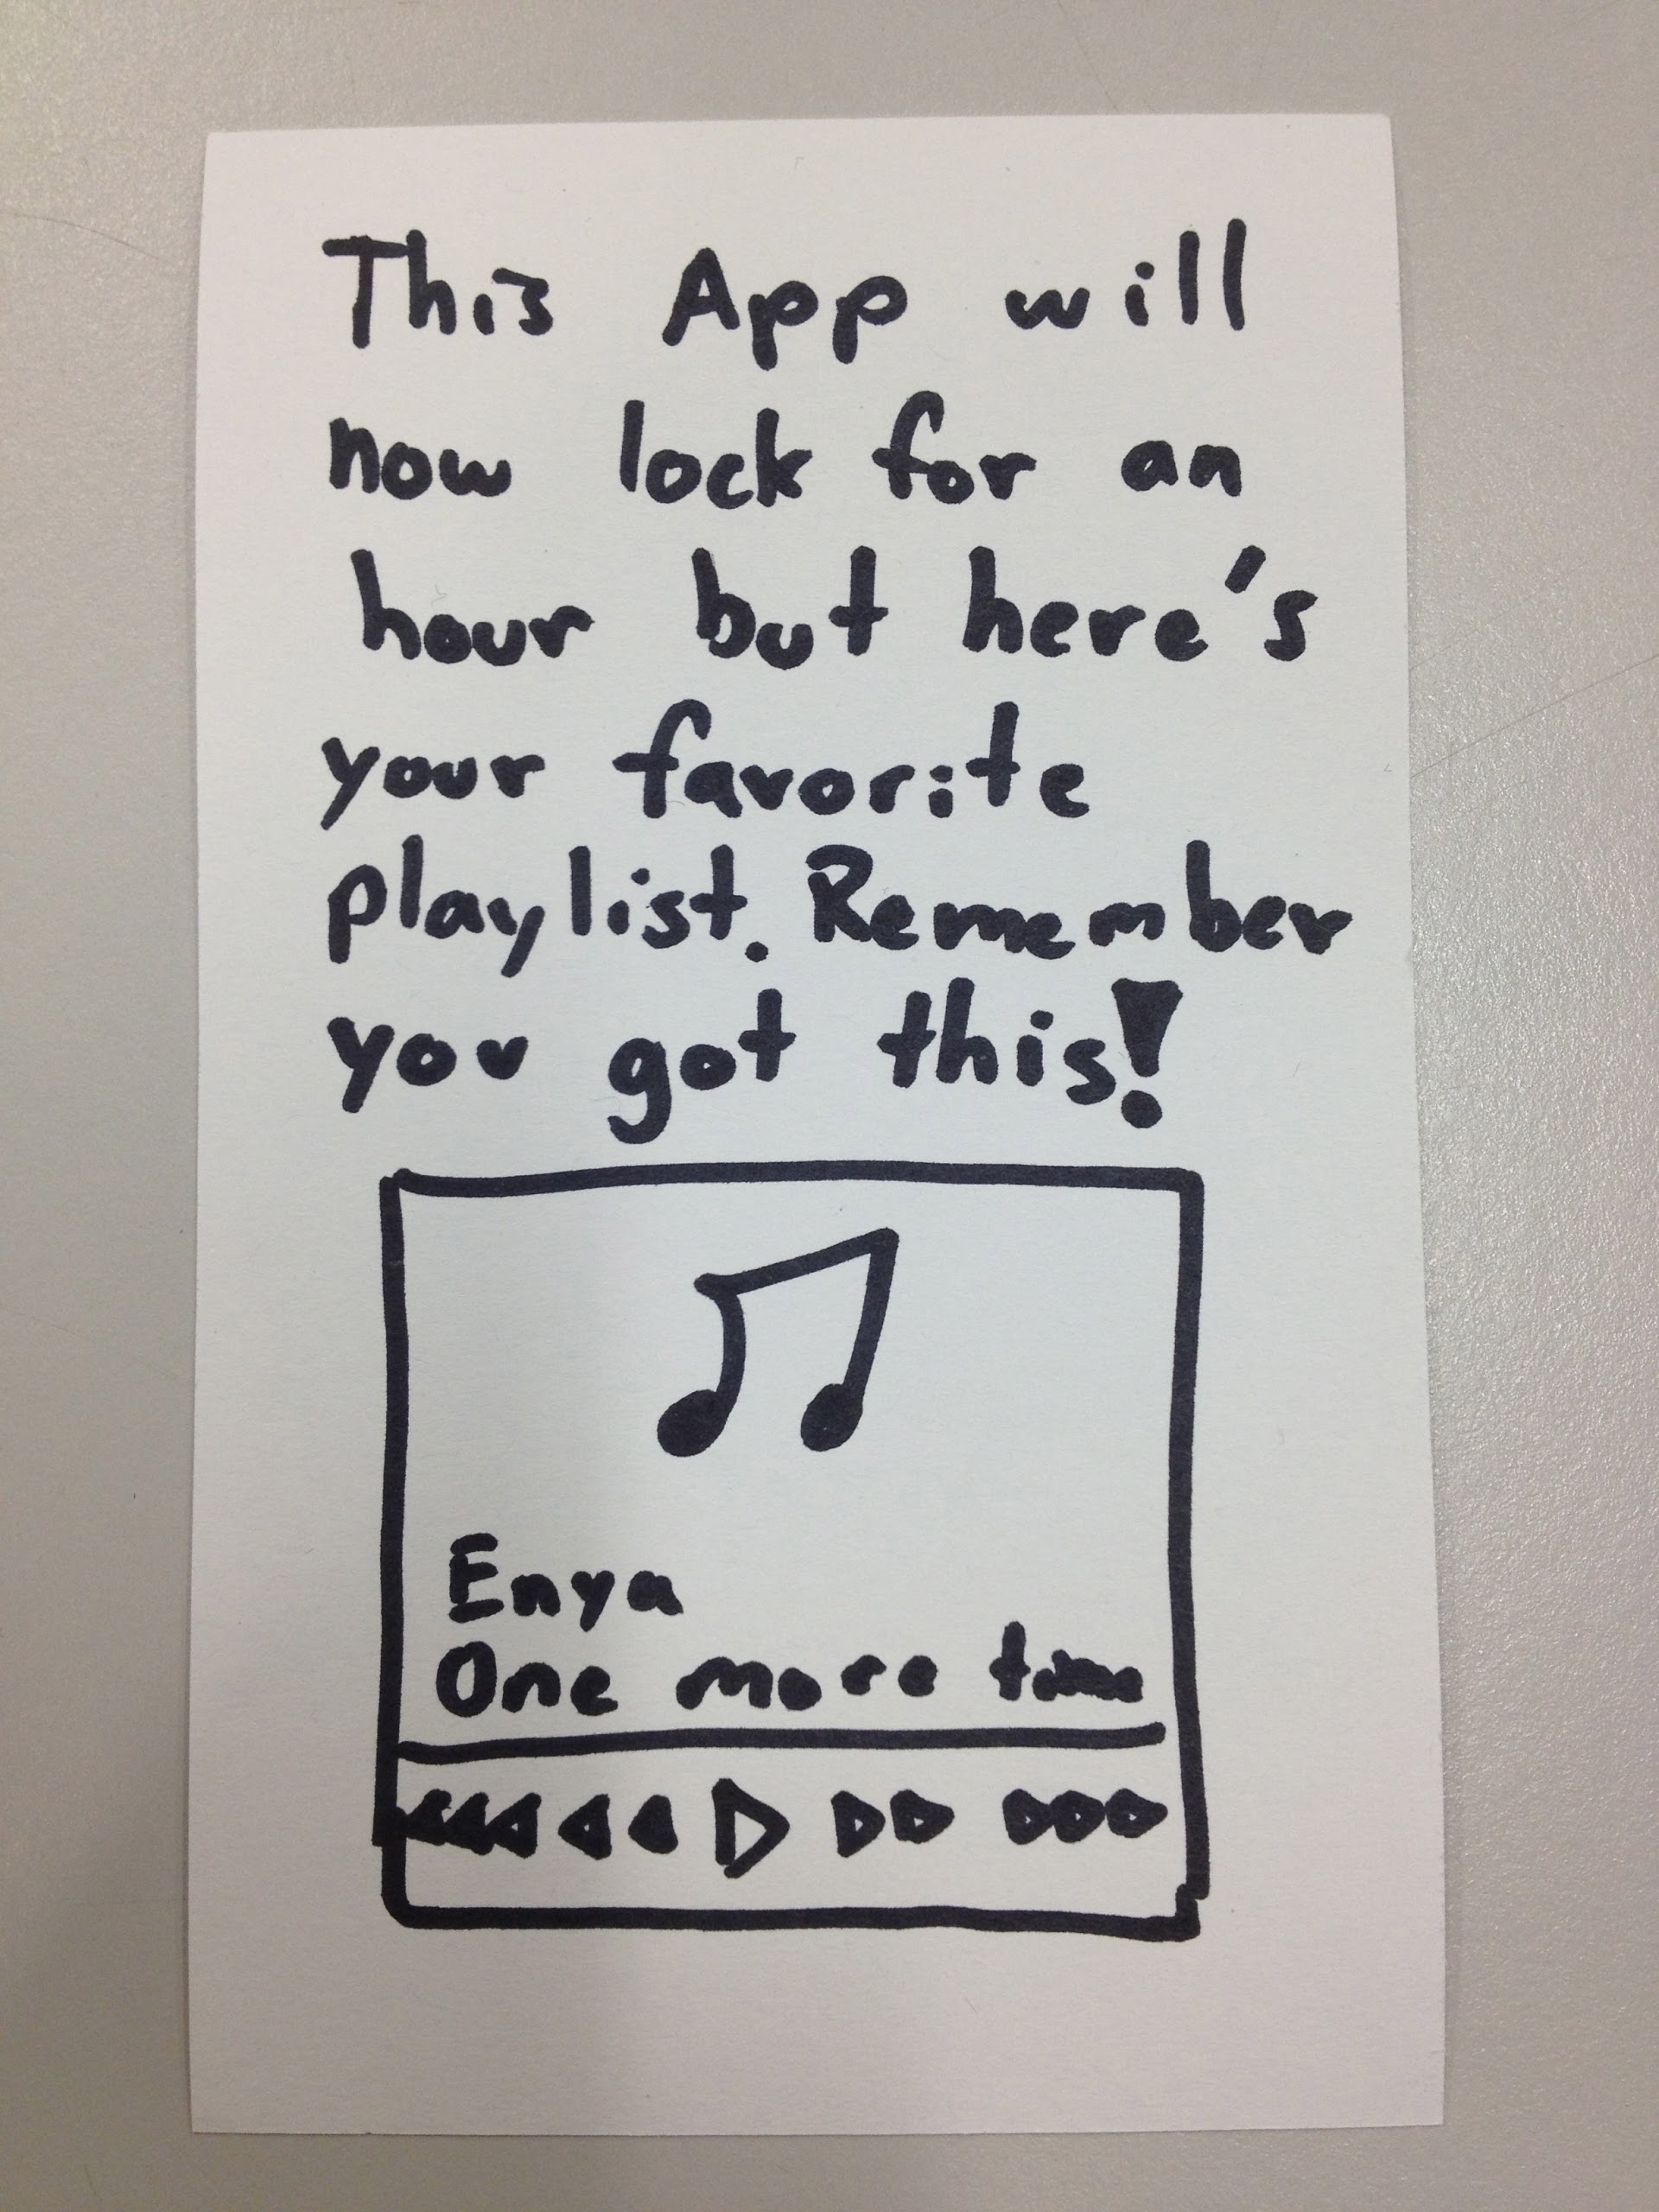 This App will
now lock for an
hour but here's
your favorite
playlist. Remember
you got this!
Enya
One more time